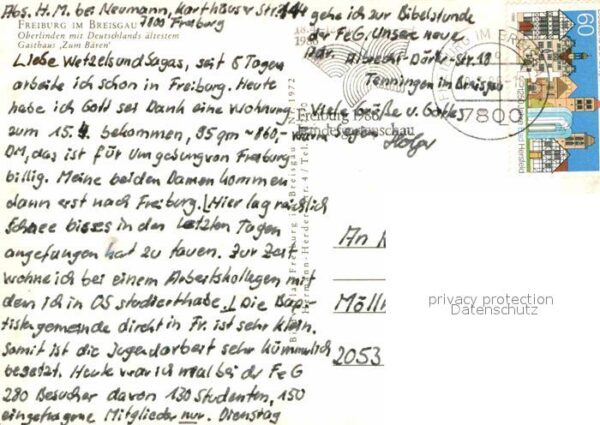 Abs. H.M. bei Neumann, Karthäuserstr. 144
7800 Freiburg
FREIBURG IM BREISGAU
Oberlinden mit Deutschlands ältestem
Gasthaus „Zum Bären“
Liebe Wetzels und Sagas, seit 8 Tagen
arbeite ich schon in Freiburg. Heute
habe ich Gott sei Dank eine Wohnung
zum 15.4. bekommen, 95 qm ~860,- warm
DM, das ist für Umgebung von Freiburg
billig. Meine beiden Damen kommen
dann erst nach Freiburg. Hier lag reichlich
Schnee bis es in den letzten Tagen
angefangen hat zu tauen. Zur Zeit
wohne ich bei einem Arbeitskollegen mit
dem ich in OS studiert habe. Die Bap-
tistengemeinde direkt in Fr. ist sehr klein.
Somit ist die Jugendarbeit sehr kümmerlich
besetzt. Heute war ich mal bei der FeG
280 Besucher davon 130 Studenten, 150
eingetragene Mitglieder nur. Dienstag
gehe ich zur Bibelstunde
der FeG. Unsere neue
Adr. Albrecht-Dürer-Str. 10
Tenningen im Breisgau
Viele Grüße u. Gottes
Segen Holger
Freiburg 1986
Landesgartenschau
1986
FREIBURG IM BREISGAU
7800
60
Bad Hersfeld
An
Mölln
2053
privacy protection
Datenschutz